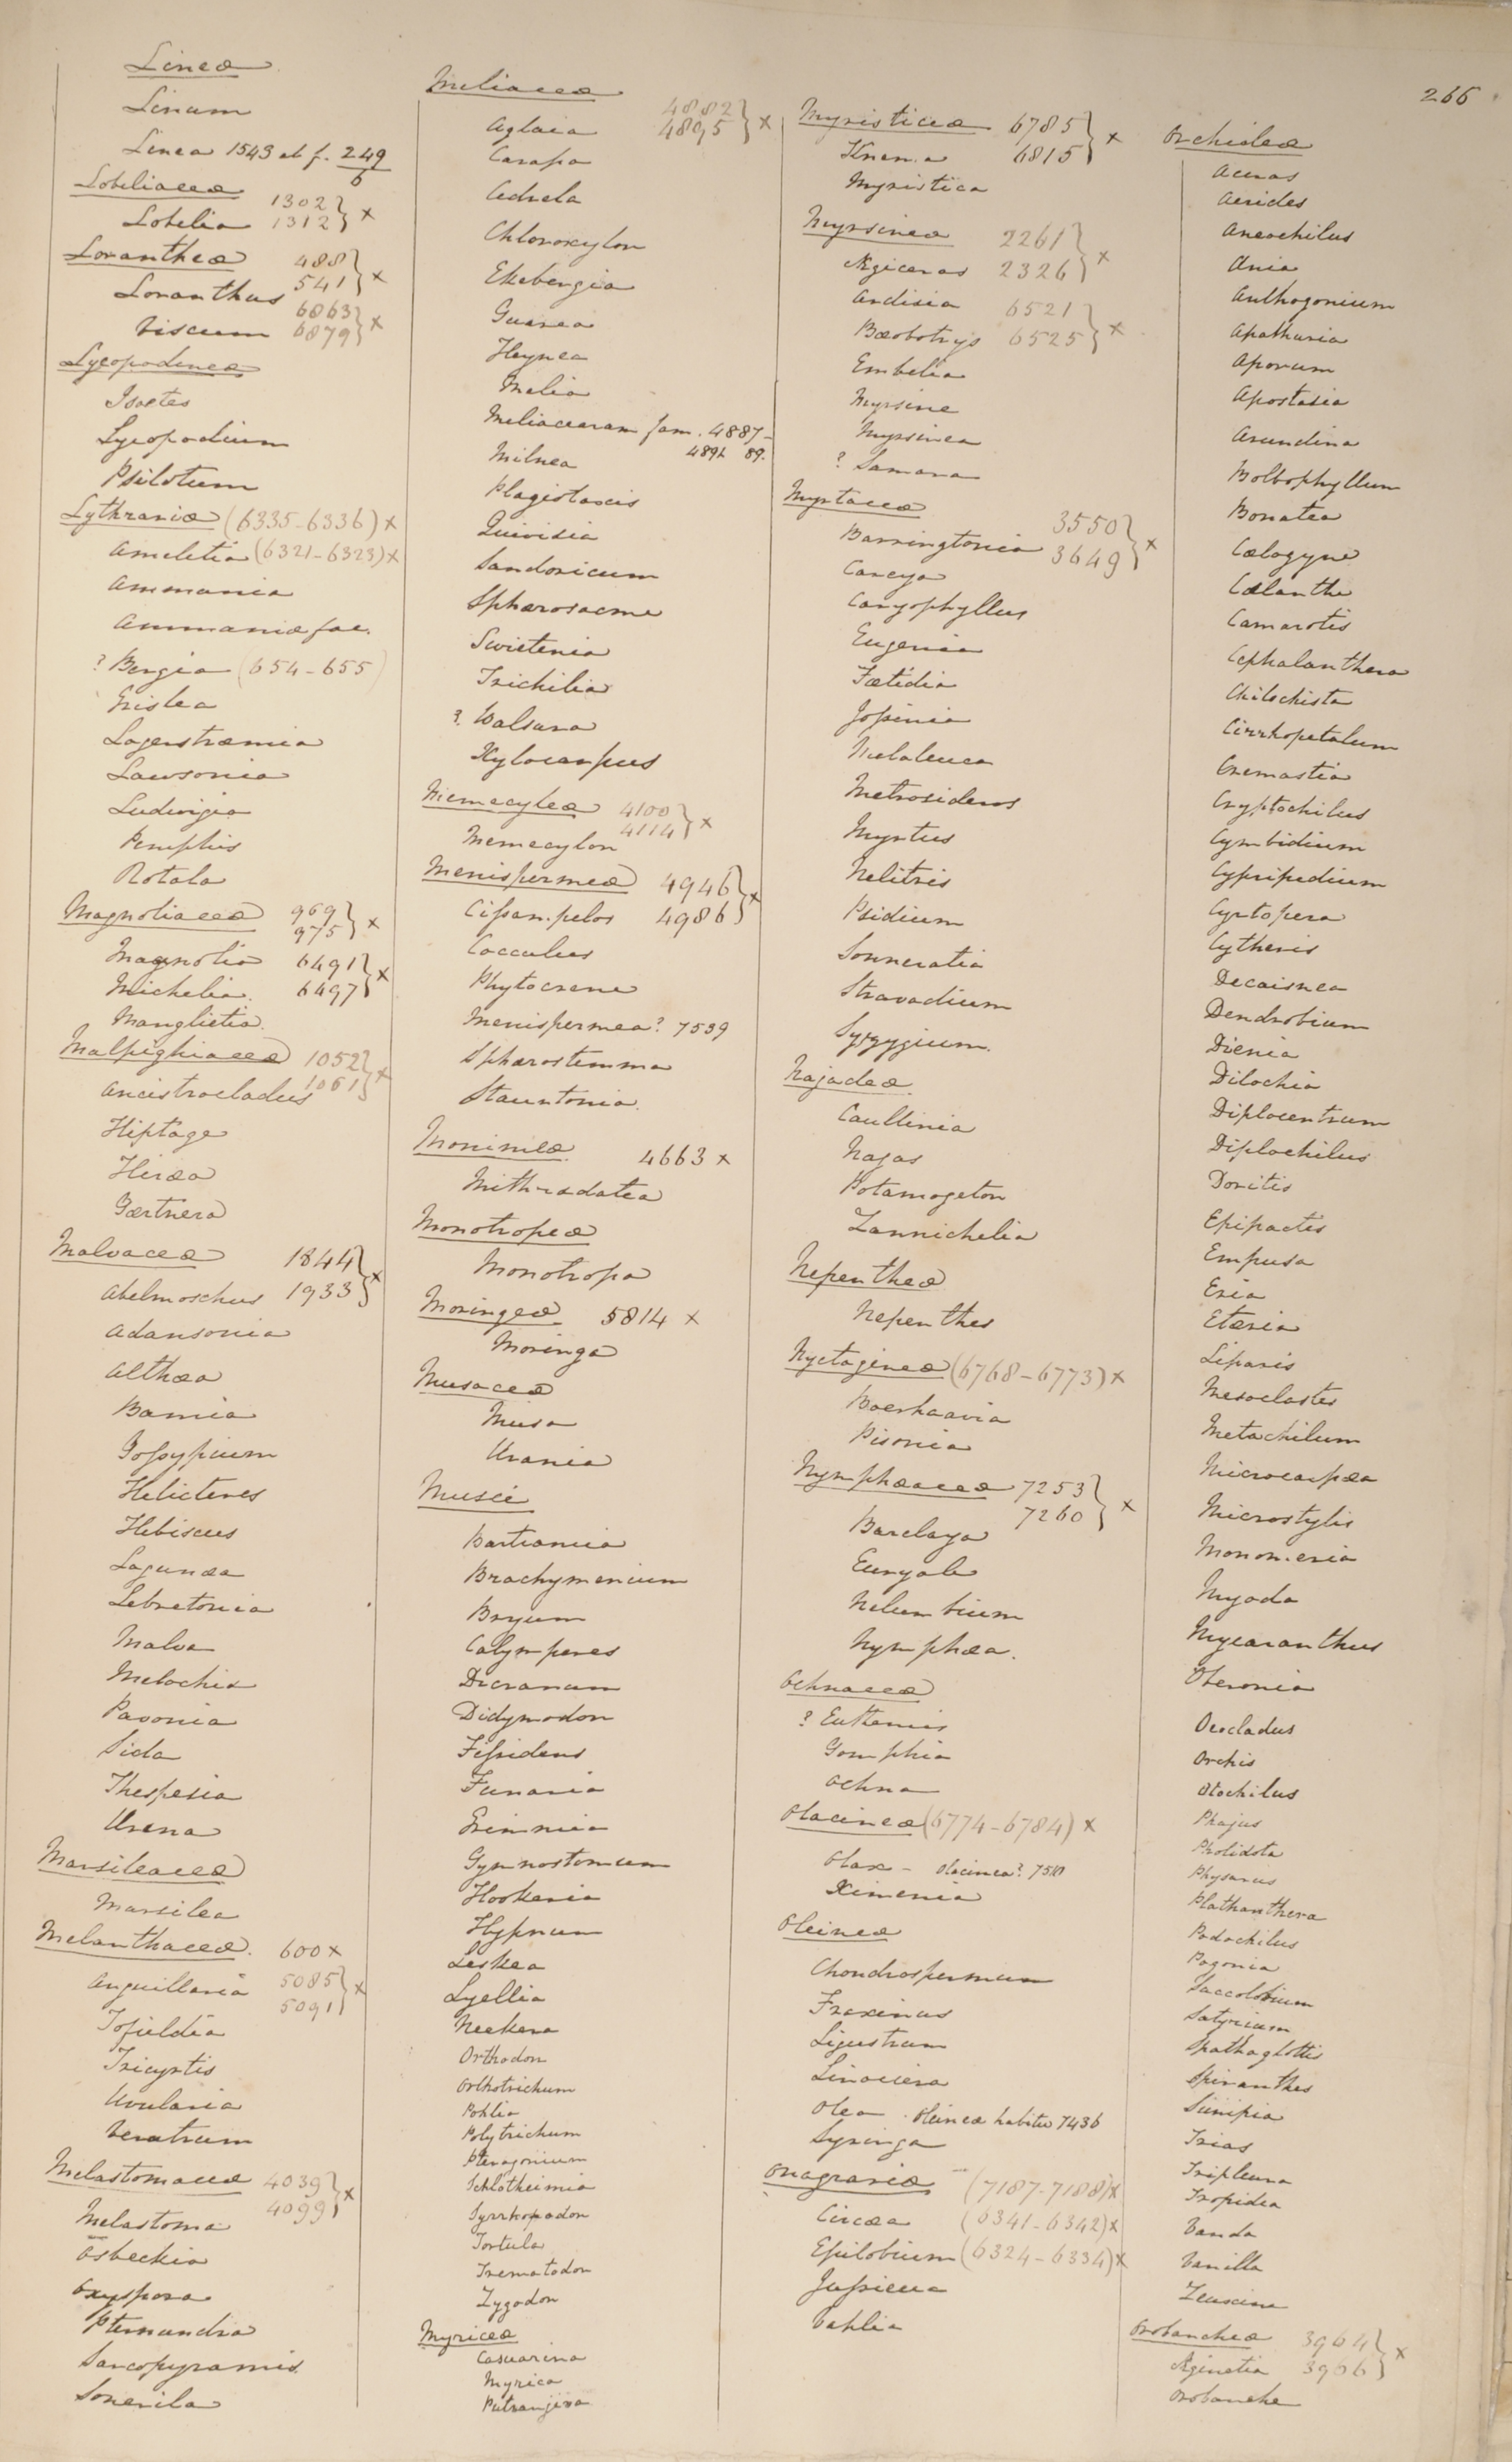 266
Lineæ
Linum
Linea 1543 ab f. 249
6
Lobeliaceæ
1302
Lobelia 1312 } x
Lorantheæ 488
541 } x
Loranthus
6863
Viscum 6879 } x
Lycopodineæ
Isoetes
Lycopodium
Psilotum
Lythrariæ (6335-6336) x
Ameletia (6321-6323) x
Ammania
Ammaniæ fac.
? Bergia (654-655)
Grislea
Lagerstræmia
Lawsonia
Ludwigia
Pemphis
Rotala
Magnoliaceæ 969
975 } x
Magnolia 6491
Michelia. 6497 } x
Manglietia.
Malpighiaceæ 1052
1061 } x
Ancistrocladus
Hiptage
Hiræa
Gærtnera
Malvaceæ 1844
Abelmoschus 1933 } x
Adansonia
Althæa
Bamia
Gossypium
Helicteres
Hibiscus
Lagunæa
Lebretonia
Malva
Melochia
Pavonia
Sida
Thespesia
Urena
Marsileaceæ
Marsilea
Melanthaceæ. 600 x
Anguillaria 5085
5091 } x
Tofieldia
Tricyrtis
Uvularia
Veratrum
Melastomaceæ 4039
4099 } x
Melastoma
Osbeckia
Oxyspora
Pternandra
Sarcopyramis.
Sonerila
Meliaceæ
4882
Aglaia 4895 } x
Carapa
Cedrela
Chloroxylon
Ekebergia
Guarea
Heynea
Melia
Meliacearum fam. 4887-
489½ 89.
Milnea
Plagiotaxis
Quivisia
Sandoricum
Sphærosacme
Swietenia
Trichilia
? Walsura
Xylocarpus
Memecyleæ 4100
4114 } x
Memecylon
Menispermeæ 4946
Cissampelos 4986 } x
Cocculus
Phytocrene
Menispermea? 7539
Sphærostemma
Stauntonia.
Monimieæ. 4663 x
Mithridatea
Monotropeæ
Monotropa
Moringeæ 5814 x
Moringa
Musaceæ
Musa
Urania
Musci
Bartramia
Brachymenium
Bryum
Calymperes
Dicranum
Didymodon
Fissidens
Funaria
Grimmia
Gymnostomum
Hookeria
Hypnum
Leskea
Lyellia
Neckera
Orthodon
Orthotrichum
Pohlia
Polytrichum
Pterogonium
Schlotheimia
Syrrhopodon
Tortula
Trematodon
Zygodon
Myriceæ
Casuarina
Myrica
Putranjiva
Myristiceæ 6785
Knema 6815 } x
Myristica
Myrsineæ 2261
Ægiceras 2326 } x
Ardisia 6521
Bæobotrys 6525 } x
Embelia
Myrsine
Myrsinea
? Samara
Myrtaceæ
3550
Barringtonia 3649 } x
Careya
Caryophyllus
Eugenia
Fœtidia
Jossinia
Melaleuca
Metrosideros
Myrtus
Nelitris
Psidium
Sonneratia
Stravadium
Syzygium.
Najadeæ.
Caullinia
Najas
Potamogeton
Zannichelia
Nepentheæ
Nepenthes
Nyctagineæ (6768-6773) x
Boerhaavia
Pisonia
Nymphæaceæ 7253
7260 } x
Barclaya
Euryale
Nelumbium
Nymphæa.
Ochnaceæ
? Euthemis
Gomphia
Ochna
Olacineæ (6774-6784) x
Olax - Olacinea? 7510
Ximenia
Oleineæ
Chondrospermum
Fraxinus
Ligustrum
Linociera
Olea . Oleineæ habitu 7436
Syringa
Onagrariæ (7187-7188) x
Circæa (6341-6342) x
Epilobium (6324-6334) x
Jussieua
Vahlia
Orchideæ
Aceras
Aerides
Anæochilus
Ania
Anthogonium
Apaturia
Aporum
Apostasia
Arundina
Bolbophyllum
Bonatea
Cælogyne
Calanthe
Camarotis
Cephalanthera
Chilochista
Cirrhopetalum
Cremastia
Cryptochilus
Cymbidium
Cypripedium
Cyrtopera
Cytheris
Decaisnea
Dendrobium
Dienia
Dilochia
Diplocentrum
Diplochilus
Doritis
Epipactis
Empusa
Eria
Etæria
Liparis
Mesoclastes
Metachilum
Microcarpæa
Microstylis
Monomeria
Myoda
Mycaranthus
Oberonia
Oxocladus
Orchis
Otochilus
Phajus
Pholidota
Physurus
Plathanthera
Podochilus
Pogonia
Saccolobium
Satyrium
Spathoglottis
Spiranthes
Sunipia
Trias
Tripleura
Tropidia
Vanda
Vanilla
Zeuxine
Orobancheæ 3964
Æginetia 3966 } x
Orobanche